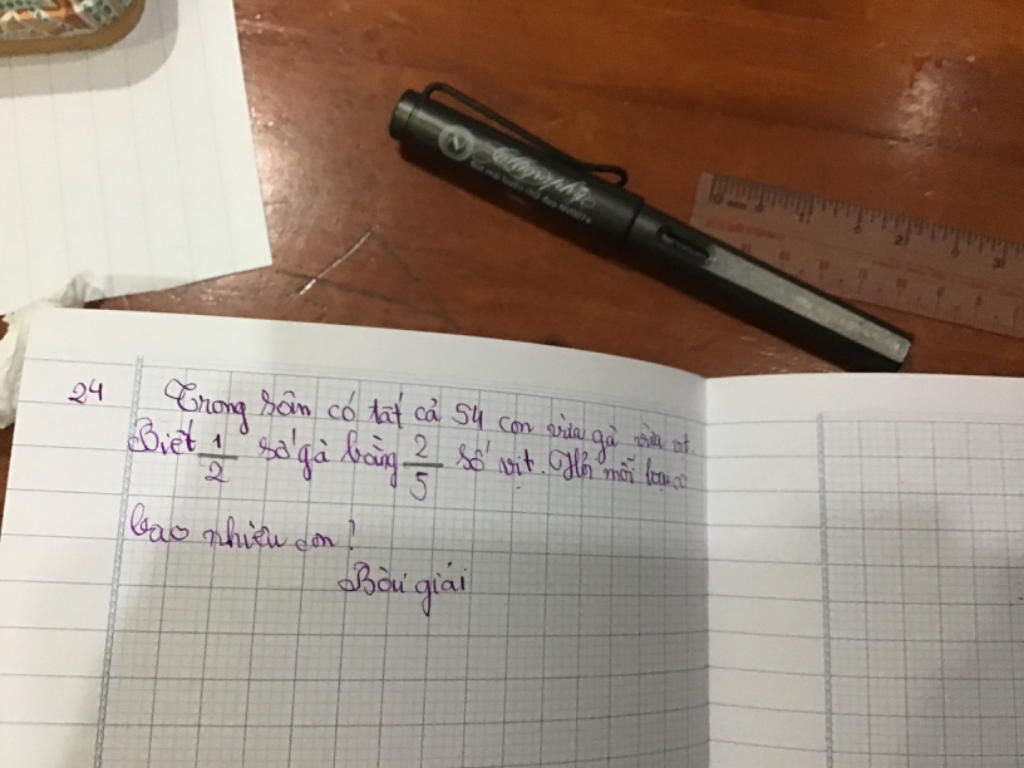 Calligraphy
24 Trong sân có tất cả 54 con vừa gà vừa vịt.
Biết 1/2 số gà bằng 2/5 số vịt. Hỏi mỗi loại có
bao nhiêu con?
Bài giải